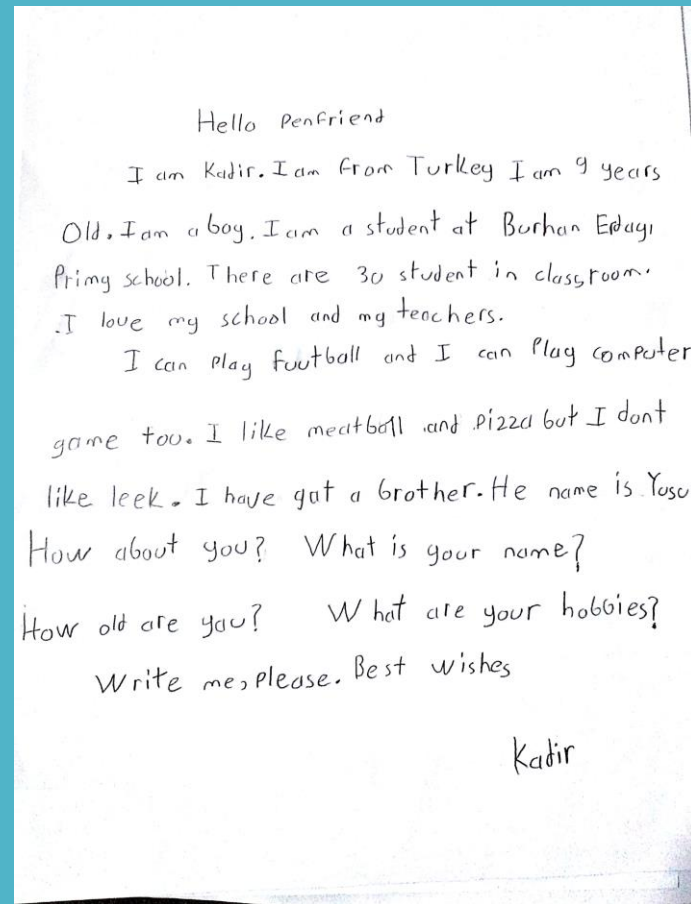 Hello Penfriend
I am Kadir. I am from Turkey I am 9 years
Old. I am a boy. I am a student at Burhan Erdayı
Primy school. There are 30 student in classroom.
I love my school and my teachers.
I can Play football and I can Play computer
game too. I like meatball and Pizza but I dont
like leek. I have gat a brother. He name is Yusu
How about you? What is your name?
How old are yau? What are your hobbies?
Write me, Please. Best wishes
Kadir